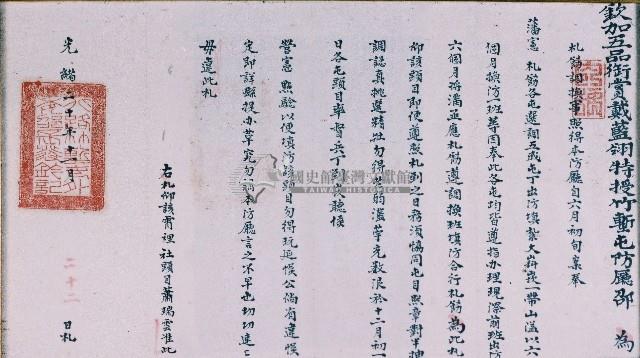 欽加五品銜賞戴藍翎特授竹塹屯防屬邵 為
札飭調換事照得本防屬自六月初旬案奉
藩憲 札飭各屯選調五成屯丁出防填紮大嵙崁一帶山溢以六
個月換防一班等因奉此各屯均皆遵指办理現際前班出防
六個月將滿亟應札飭遵調換班填防合行札飭為此札
仰該頭目即便遵照札到之日務須協同屯目照章對半抽
調認真挑選精壯勿得老弱濫竽充数限於十二月初一
日各屯頭目率督兵丁到 聽候
營憲 點驗以便填防該頭目勿得玩延悮公倘有違悮
定即詳縣提办革究勿謂本防屬言之不早也切切速速
毋違此札
右札仰該霄裡社頭目蕭瑞雲准此
光緒二十年十一月 二十二 日札
國史館臺灣文獻館
TAIWAN HISTORICA